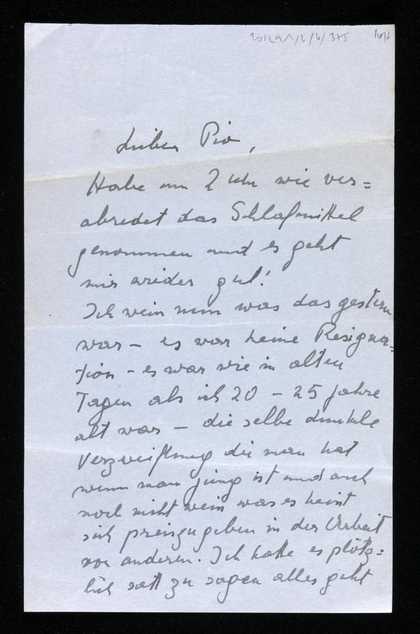 Lieber Pio,
Habe um 2 Uhr wie ver=
abredet das Schlafmittel
genommen und es geht
mir wieder gut!
Ich wein nun was das gestern
war – es war keine Resigna=
tion – es war wie in alten
Tagen als ich 20 – 25 Jahre
alt war – die selbe dunkle
Verzweiflung die man hat
wenn man jung ist und auch
noch nicht wein was es heint
sich preiszugeben in der Arbeit
vor anderen. Ich hatte es plötz=
lich satt zu sagen alles geht